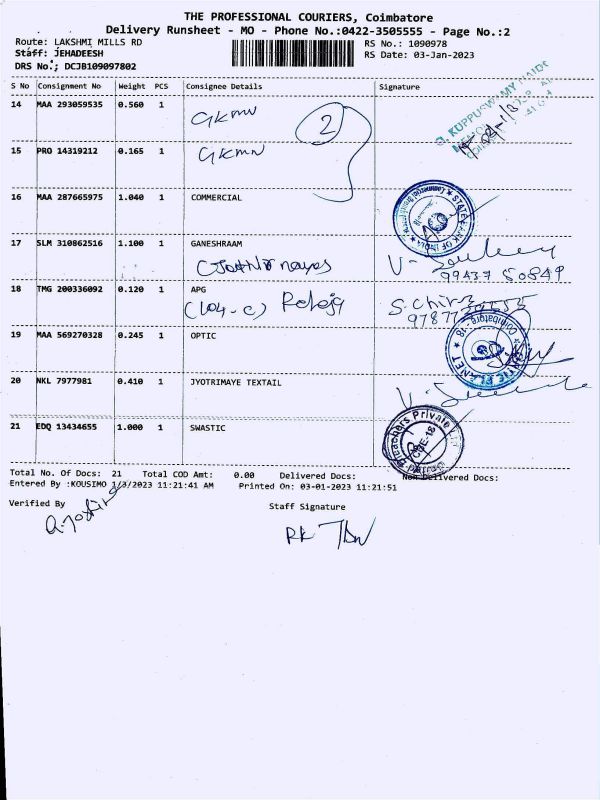 THE PROFESSIONAL COURIERS, Coimbatore
Delivery Runsheet - MO - Phone No.:0422-3505555 - Page No.:2
Route: LAKSHMI MILLS RD RS No.: 1090978
Staff: JEHADEESH RS Date: 03-Jan-2023
DRS No.; DCJB109097802
S No Consignment No Weight PCS Consignee Details Signature
14 MAA 293059535 0.560 1 GKMN 2
G. KUPPUSWAMY NAIDU
15 PRO 14319212 0.165 1 GKMN
16 MAA 287665975 1.040 1 COMMERCIAL
STATE BANK OF INDIA
17 SLM 310862516 1.100 1 GANESHRAAM
99437 50849
18 TMG 200336092 0.120 1 APG
(104-C)
S. Chitra
19 MAA 569270328 0.245 1 OPTIC
Coimbatore-18
OPTIC PLANET
20 NKL 7977981 0.410 1 JYOTRIMAYE TEXTAIL
21 EDQ 13434655 1.000 1 SWASTIC
Private
CBE-18
Total No. Of Docs: 21 Total COD Amt: 0.00 Delivered Docs: Non Delivered Docs:
Entered By :KOUSIMO 1/3/2023 11:21:41 AM Printed On: 03-01-2023 11:21:51
Verified By Staff Signature